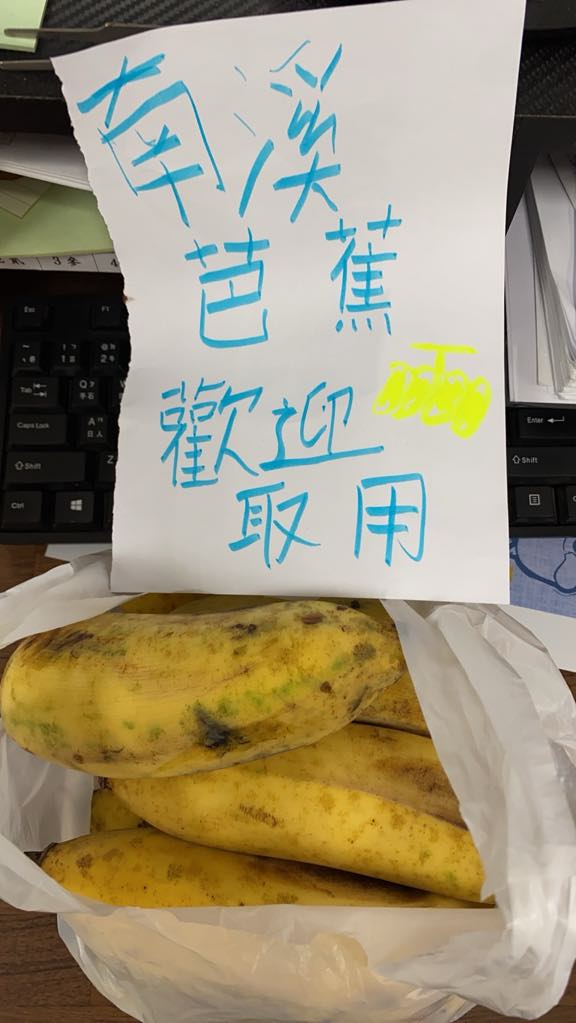 南溪
芭蕉
歡迎
取用
Esc
F1
Tab
Caps Lock
Shift
Ctrl
Q
手
A
日
人
Z
Enter
Shift
Ctrl